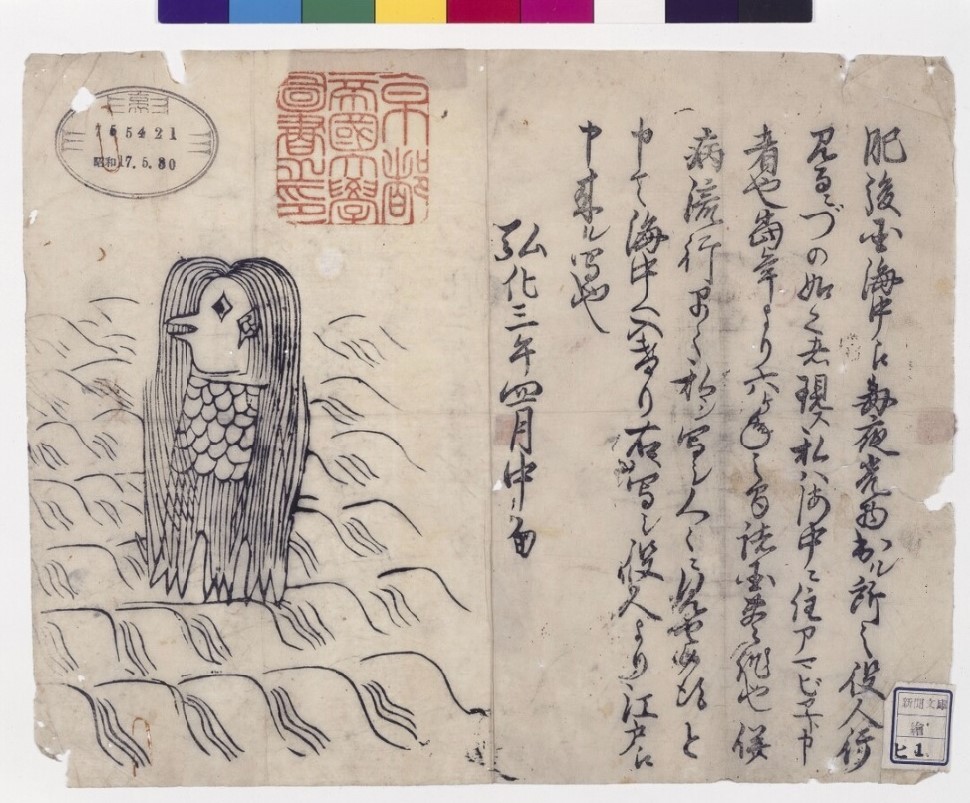 肥後国海中え毎夜光物出ル所之役人行
見るニづの如之者現ス私ハ海中ニ住アマビヱト申
者也當年より六ヶ年之間諸国豊作也併
病流行早々私シ写シ人々ニ見せ候得と
申て海中へ入けり右写シ役人より江戸え
申来ル写也
弘化三年四月中旬
京都
帝國大學
圖書之印
昭和17.5.30
新聞文庫
繪
ヒ 1